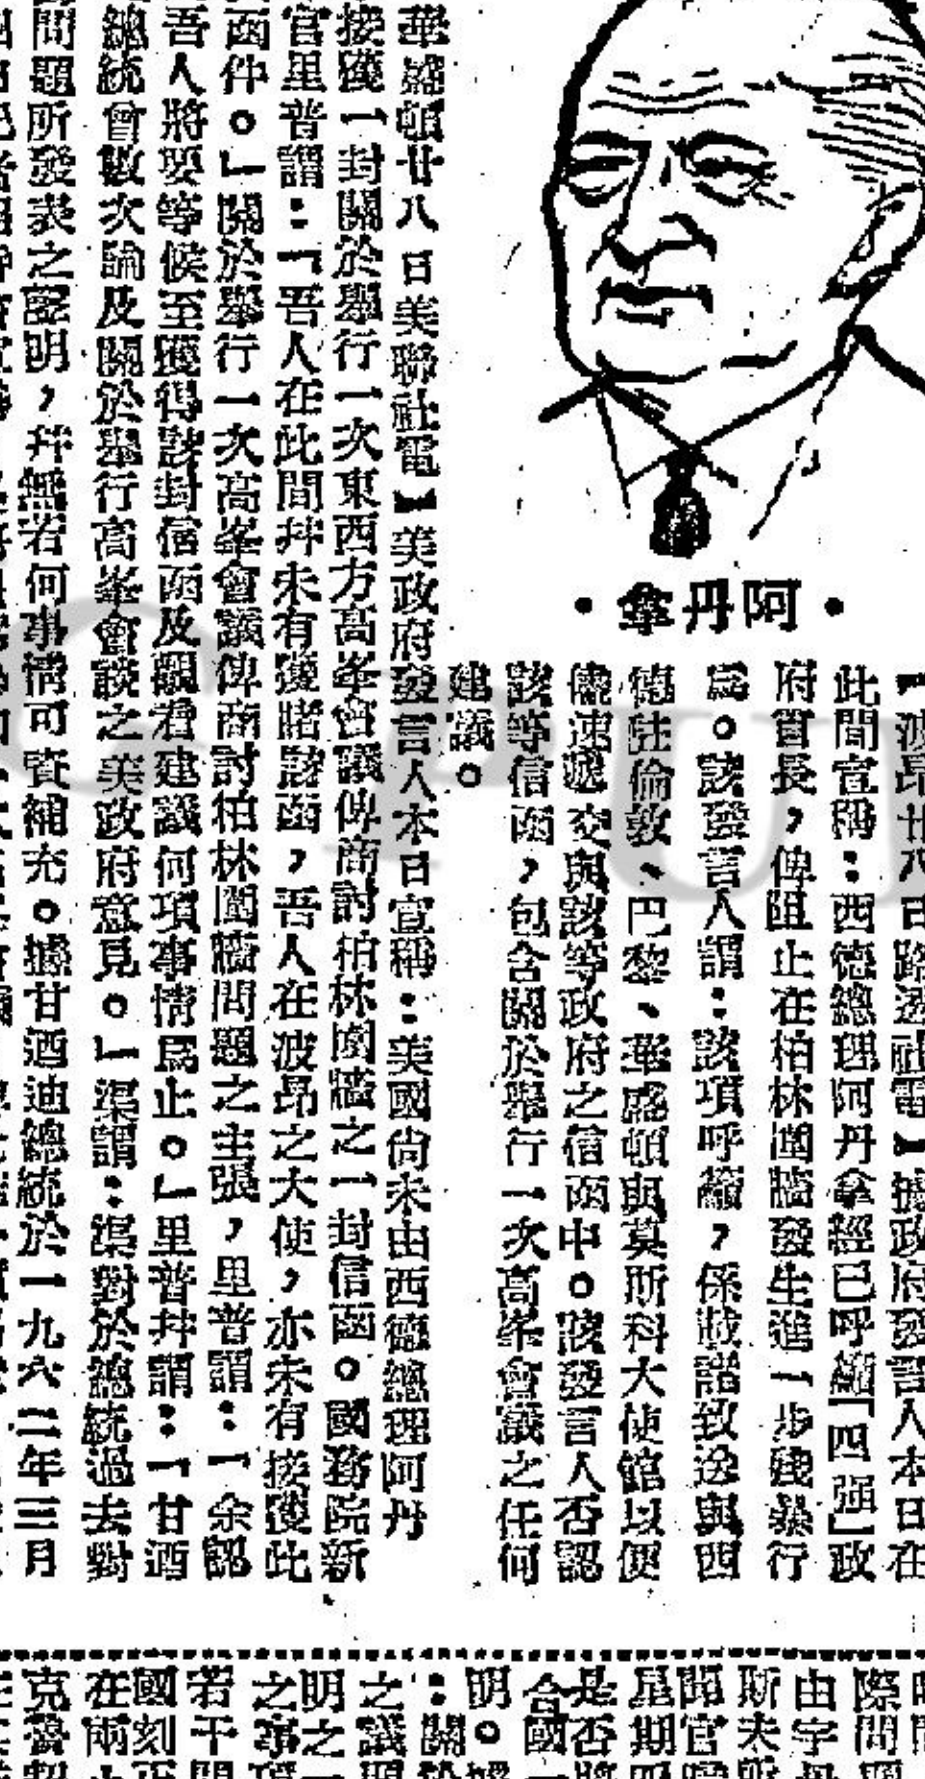 ·阿丹拿·
【波昂廿八日路透社電】據政府發言人本日在
此間宣稱:西德總理阿丹拿經已呼籲「四强」政
府首長,俾阻止在柏林圍牆發生進一步殘暴行
爲。該發言人謂:該項呼籲,係載諸致送與西
德駐倫敦、巴黎、華盛頓與莫斯科大使館以便
儘速遞交與該等政府之信函中。該發言人否認
該等信函,包含關於舉行一次高峯會議之任何
建議。
華盛頓廿八日美聯社電】美政府發言人本日宣稱:美國尙未由西德總理阿丹
接獲一封關於舉行一次東西方高峯會議俾商討柏林圍牆之一封信函。國務院新
官里普謂:「吾人在此間幷未有獲睹該函,吾人在波昂之大使,亦未有接獲此
函件。」關於舉行一次高峯會議俾商討柏林圍牆問題之主張,里普謂:「余認
吾人將要等候至獲得該封信函及觀看建議何項事情爲止。」里普幷謂:「甘迺
總統會數次論及關於舉行高峯會談之美政府意見。」渠謂:渠對於總統過去對
問題所發表之聲明,幷無若何事情可資補充。據甘迺迪總統於一九六二年三月
際間
由宇
斯夫
聞官
星期
是否
合國
明。
:關
之議
明之
之事
若干
國刻
在兩
克魯